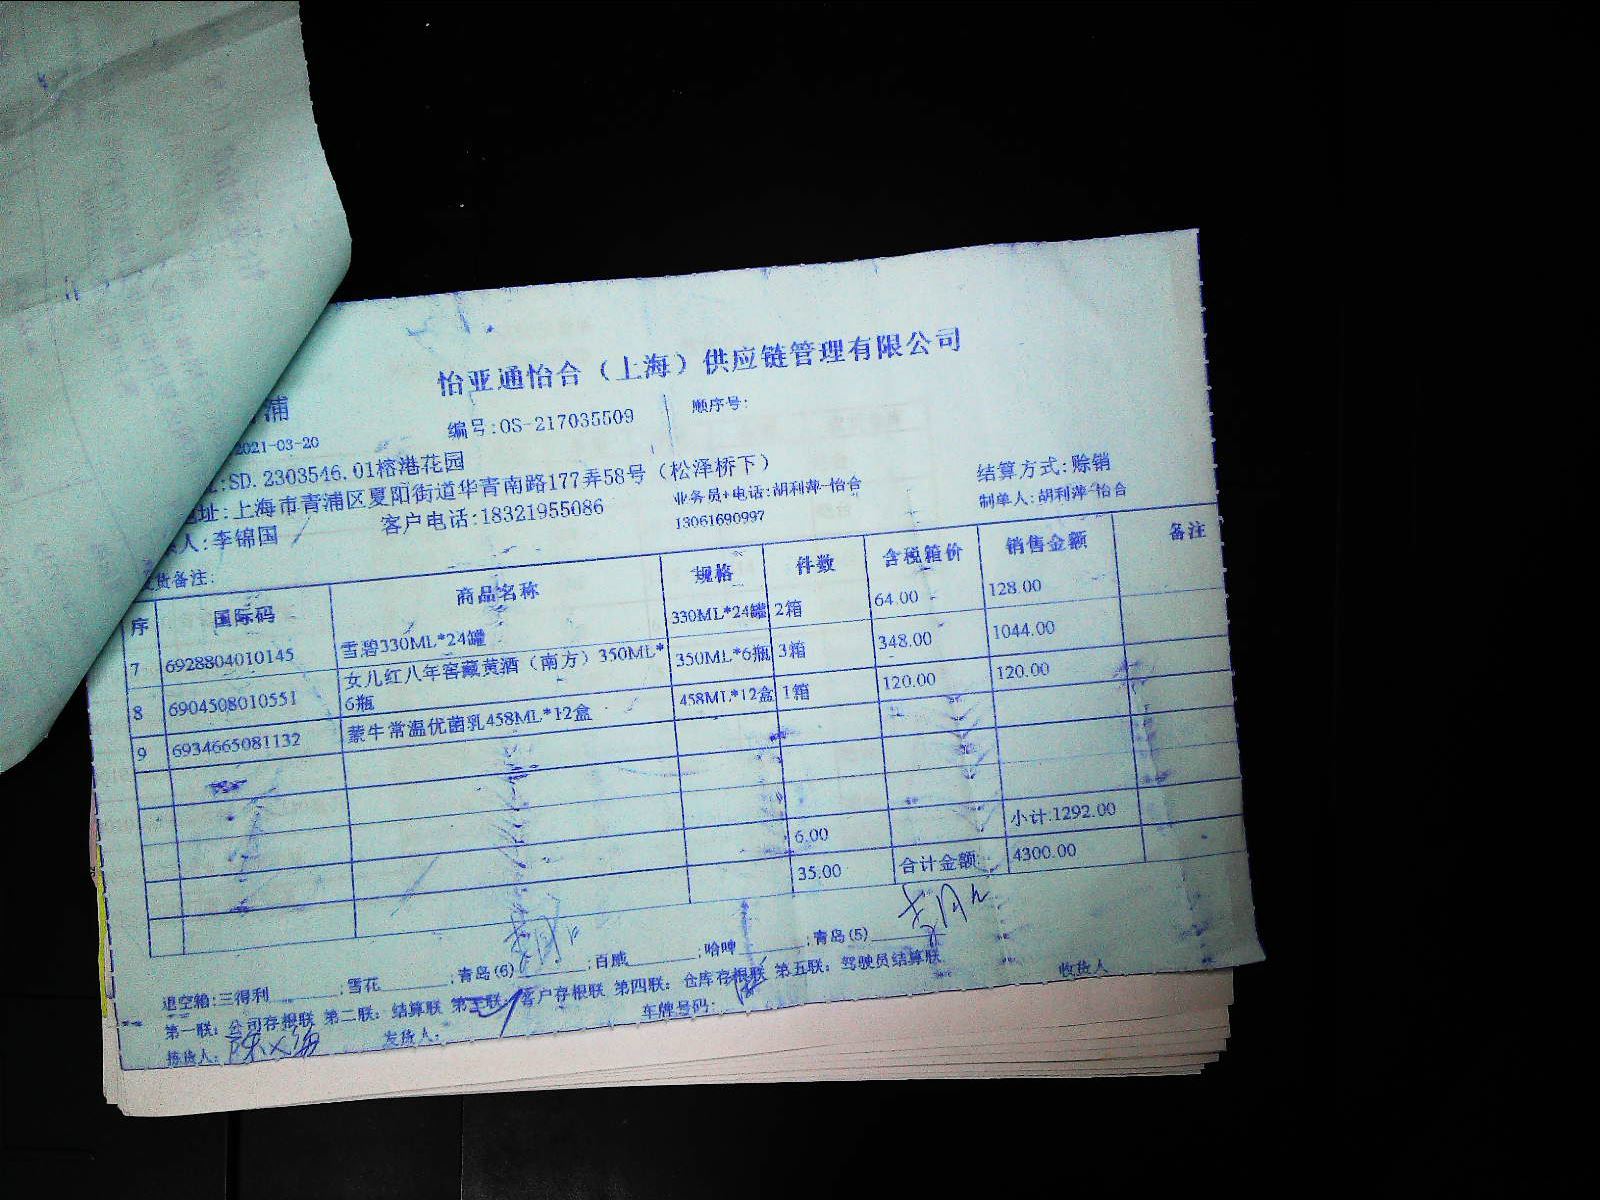 怡亚通怡合（上海）供应链管理有限公司
浦
编号:OS-217035509
顺序号:
2021-03-20
:SD.2303546.01榕港花园
结算方式:赊销
址:上海市青浦区夏阳街道华青南路177弄58号（松泽桥下）
业务员+电话:胡利萍-怡合
制单人:胡利萍-怡合
人:李锦国
客户电话:18321955086
13061690997
货备注:
序 国际码 商品名称 规格 件数 含税箱价 销售金额 备注
7 6928804010145 雪碧330ML*24罐 330ML*24罐 2箱 64.00 128.00
8 6904508010551 女儿红八年窖藏黄酒（南方）350ML*6瓶 350ML*6瓶 3箱 348.00 1044.00
9 6934665081132 蒙牛常温优菌乳458ML*12盒 458ML*12盒 1箱 120.00 120.00
6.00 小计:1292.00
35.00 合计金额: 4300.00
退空箱:三得利______;雪花______;青岛(6)______;百威______;哈啤______;青岛(5)______
第一联: 公司存根联 第二联: 结算联 第三联: 客户存根联 第四联: 仓库存根联 第五联: 驾驶员结算联
拣货人: 发货人: 车牌号码: 收货人